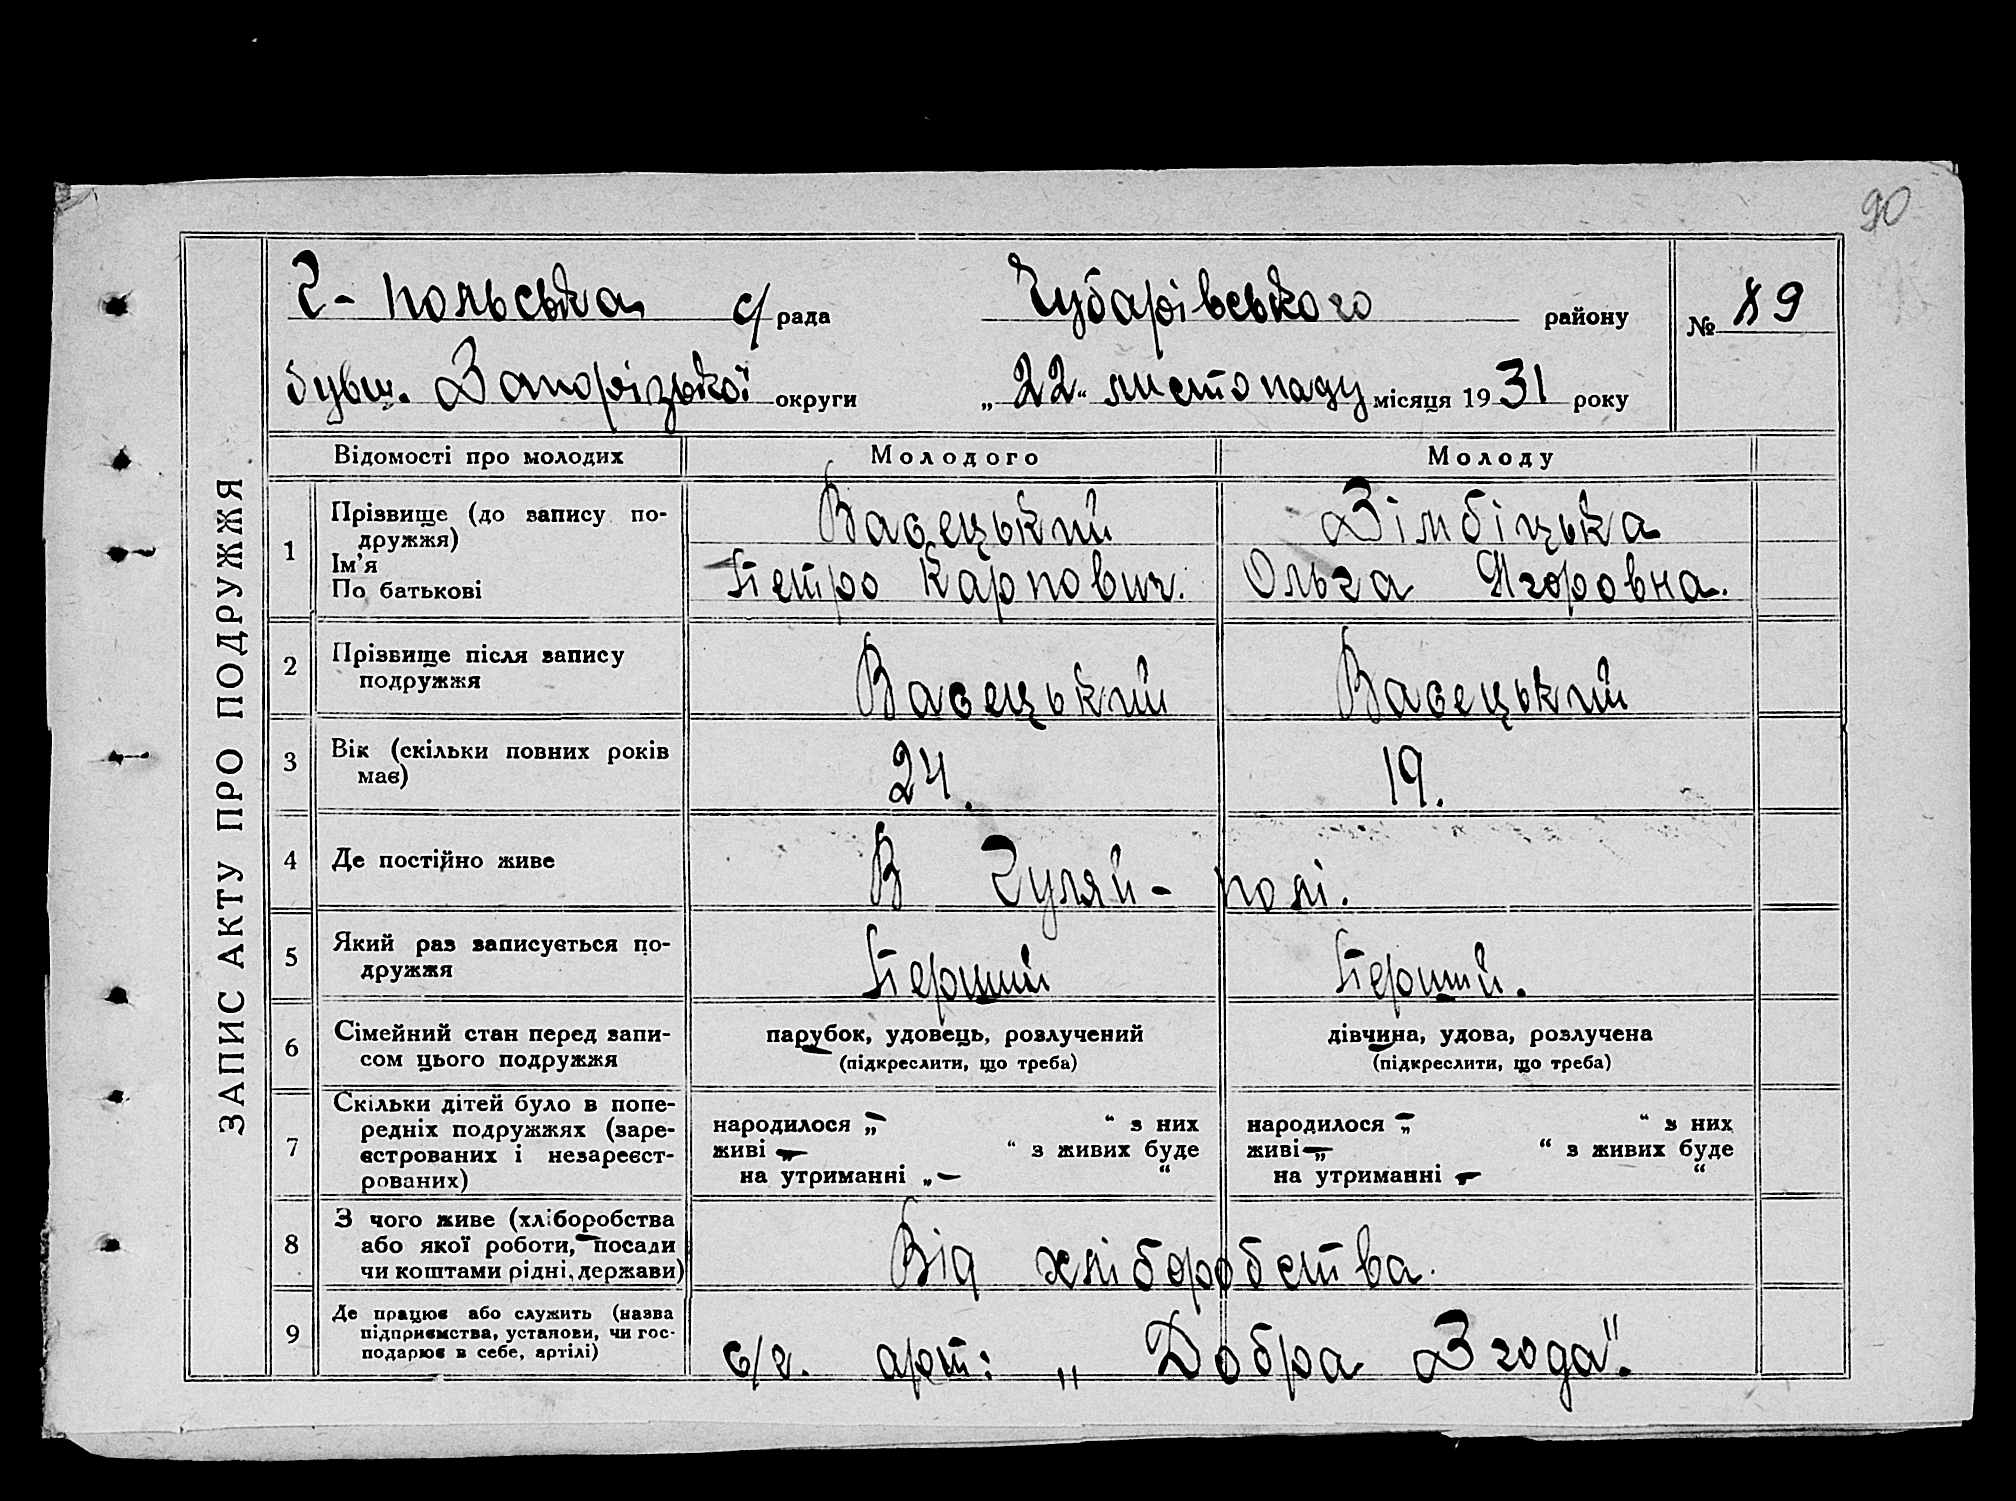 90
Г- польська с/рада Чубарівського району № 89
бувш. Запорізької округи „22“ листопаду місяця 1931 року
ЗАПИС АКТУ ПРО ПОДРУЖЖЯ
Відомості про молодих Молодого Молоду
1 Прізвище (до запису по- Васецький Зімбіцька
дружжя)
Ім'я Петро Карпович. Ольга Ягоровна.
По батькові
2 Прізвище після запису Васецький Васецький
подружжя
3 Вік (скільки повних років 24. 19.
має)
4 Де постійно живе В Гуляй- полі.
5 Який раз записується по- Перший Перший.
дружжя
6 Сімейний стан перед запи- парубок, удовець, розлучений дівчина, удова, розлучена
сом цього подружжя (підкреслити, що треба) (підкреслити, що треба)
7 Скільки дітей було в попе-
редніх подружжях (заре- народилося „- “ з них народилося „- “ з них
єстрованих і незареєст- живі „- “ з живих буде живі „- “ з живих буде
рованих) на утриманні „- “ на утриманні - “
8 З чого живе (хліборобства
або якої роботи, посади Від хліборобства.
чи коштами рідні, держави)
9 Де працює або служить (назва
підприємства, установи, чи гос-
подарює в себе, артілі) с/г. арт: „ Добра Згода".